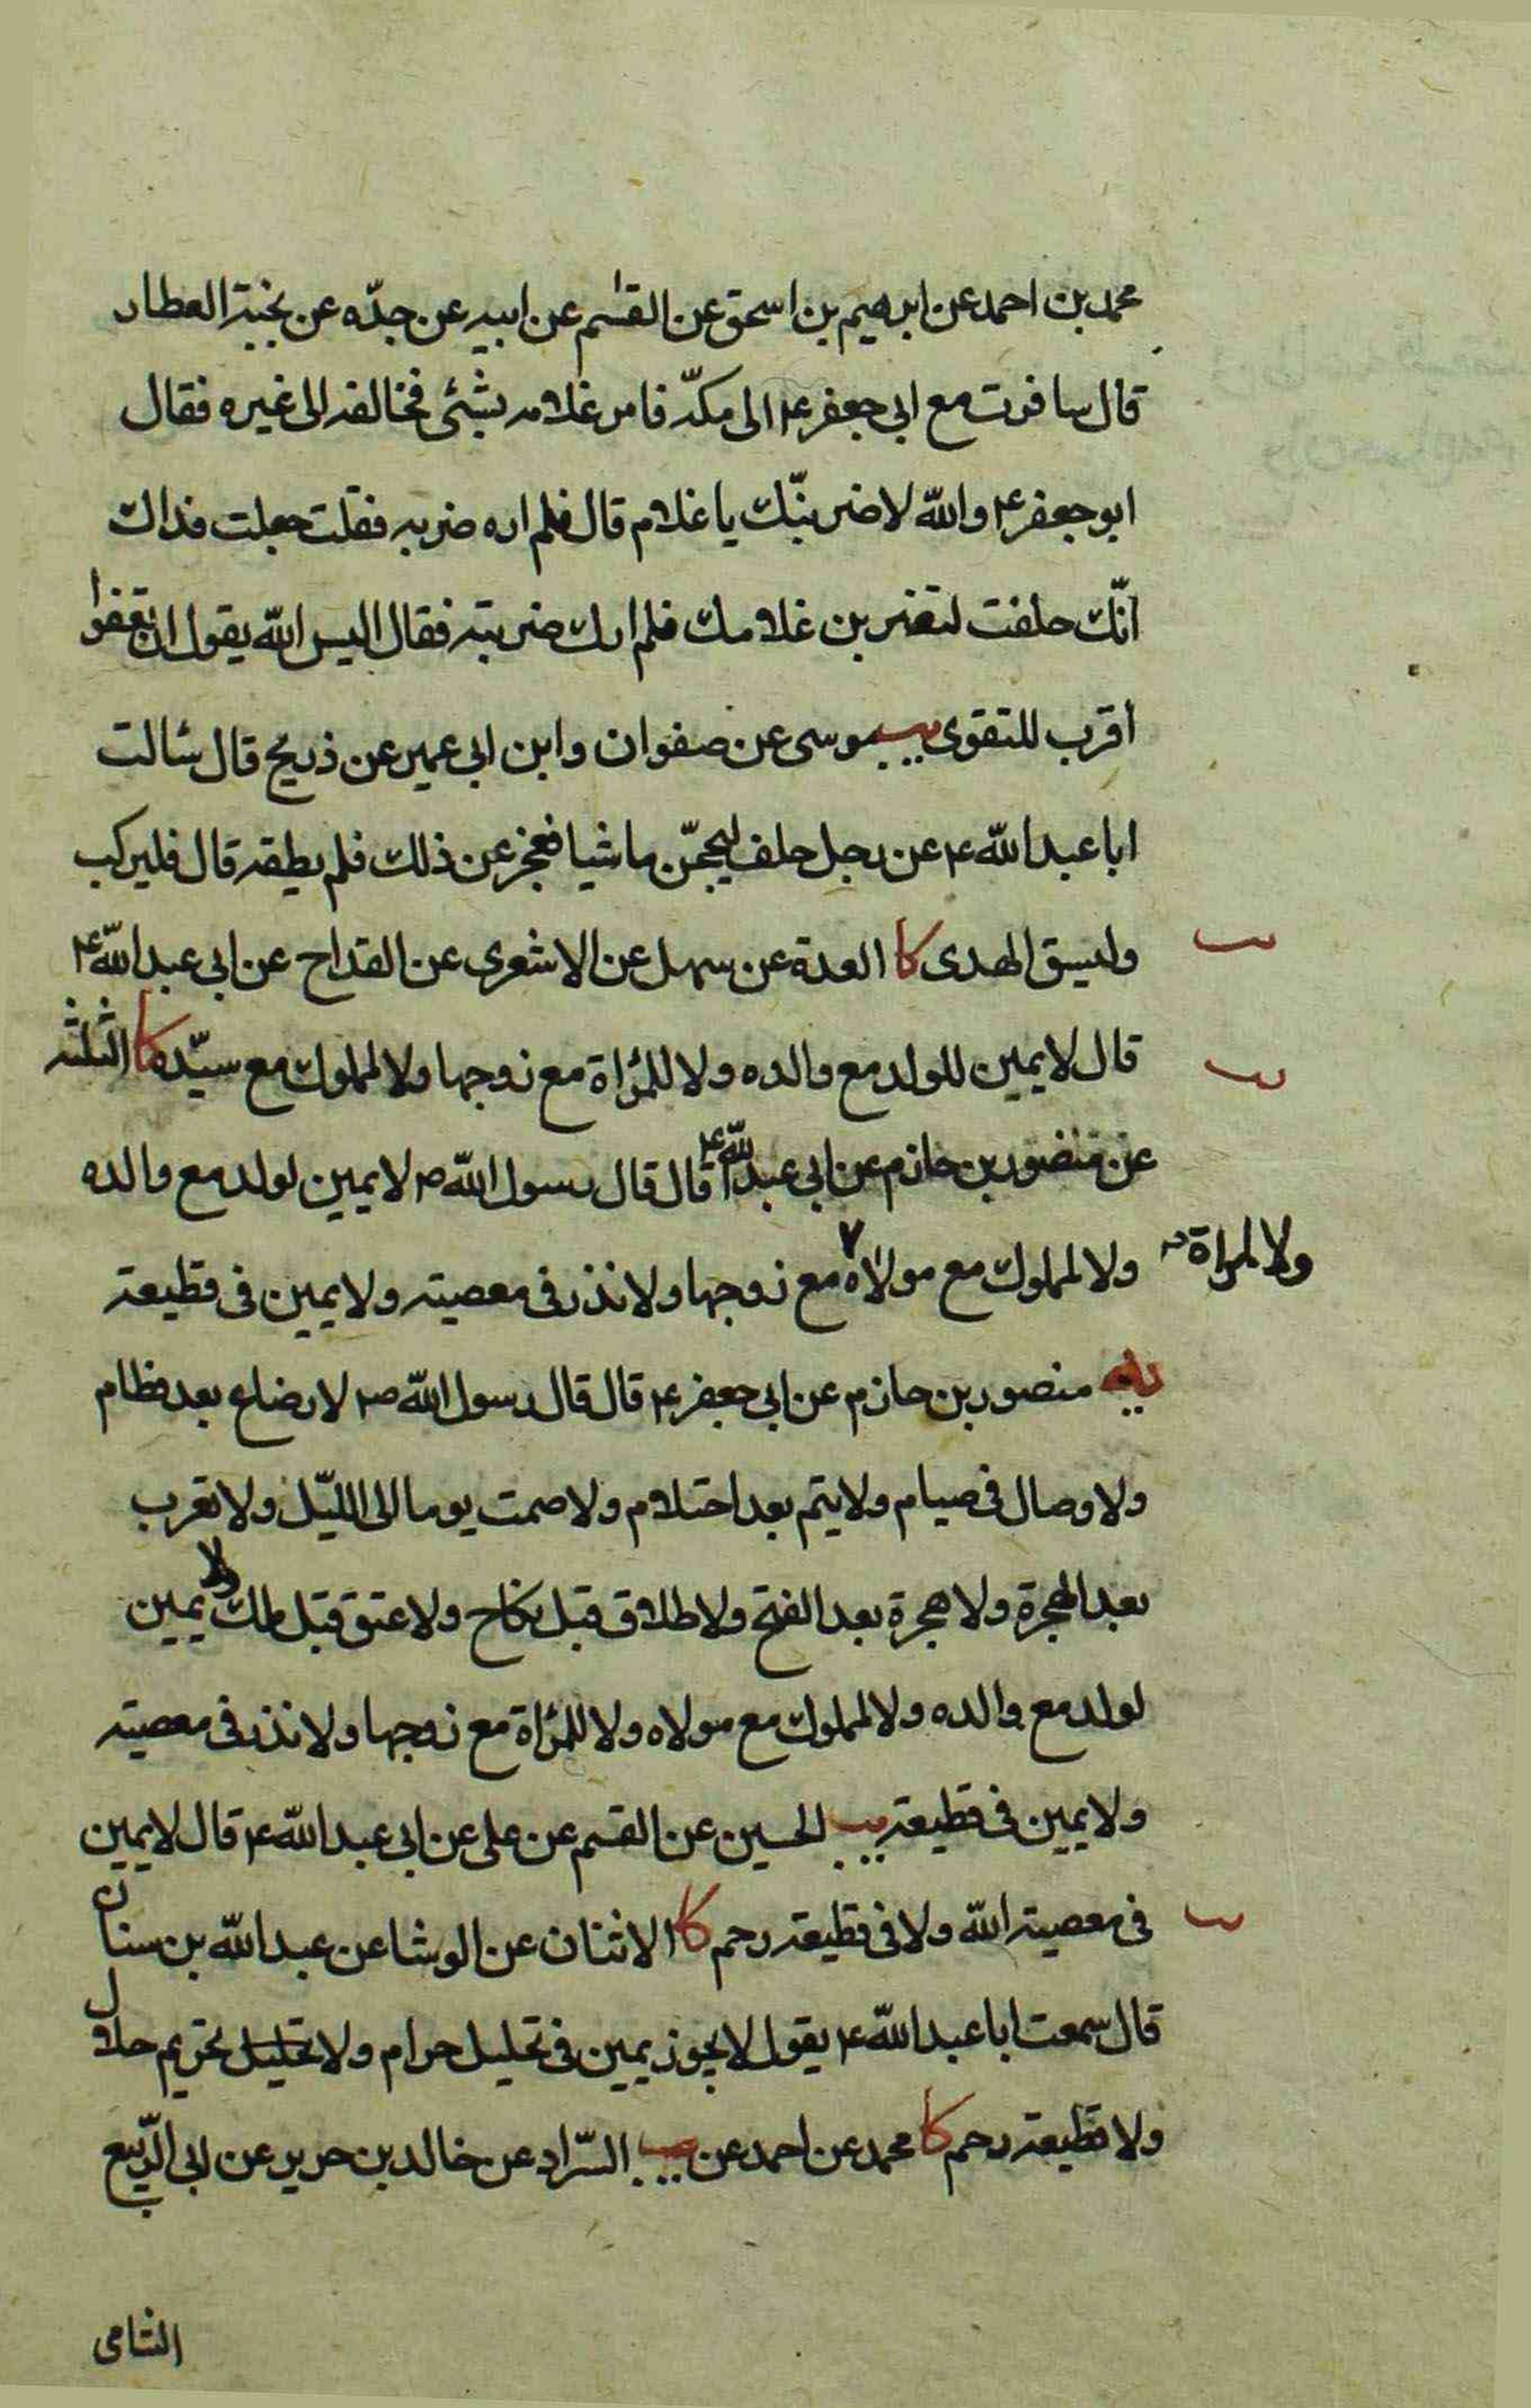 محمد بن احمد عن ابرهيم بن اسحق عن القسم عن ابيه عن جدّه عن بخية العطار
قال سافرت مع ابى جعفر ع الى مكة فامر غلامه بشئ فخالفه الى غيره فقال
ابو جعفر ع والله لاضربنّك يا غلام قال فلم اره ضربه فقلت جعلت فداك
انّك حلفت لتضربن غلامك فلم ارك ضربته فقال اليس الله يقول ان تعفوا
أقرب للتقوى يب موسى عن صفوان وابن ابى عمير عن ذريح قال سألت
ابا عبد الله ع عن رجل حلف ليحجّن ماشيا فعجز عن ذلك فلم يطقه قال فليركب
وليسق الهدى كا العدة عن سهل عن الاشعرى عن القداح عن ابى عبد الله ع
يب
قال لا يمين للولد مع والده ولا للمرأة مع زوجها ولا لمملوك مع سيّده كا الثلثة
يب
عن منصور بن حازم عن ابى عبد الله ع قال قال رسول الله ص لا يمين لولد مع والده
ولا لمملوك مع مولاه ٧ مع زوجها ولا نذر فى معصية ولا يمين فى قطيعة
ولا لمراة
يه منصور بن حازم عن ابى جعفر ع قال قال رسول الله ص لا رضاع بعد فطام
ولا وصال فى صيام ولا يتم بعد احتلام ولا صمت يوما الى الليّل ولا تعرب
بعد الهجرة ولا هجرة بعد الفتح ولا طلاق قبل نكاح ولا عتق قبل ملك ولا يمين
لولد مع والده ولا لمملوك مع مولاه ولا للمرأة مع زوجها ولا نذر فى معصية
ولا يمين فى قطيعة يب الحسين عن القسم عن على عن ابى عبد الله ع قال لا يمين
فى معصية الله ولا فى قطيعة رحم كا الاثنان عن الوشا عن عبد الله بن سنان
يب
قال سمعت ابا عبد الله ع يقول لا يجوز يمين فى تحليل حرام ولا تحليل تحريم حلال
ولا قطيعة رحم كا محمد عن احمد عن يب السّراد عن خالد بن جرير عن ابى الربيع
الشامى